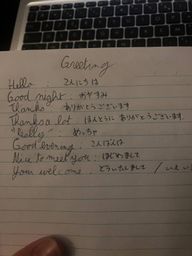 Greeting
Hello こんにちは
Good night : おやすみ
Thanks : ありがとうございます
Thanks a lot : ほんとうに ありがとうございます
"Really" : めっちゃ
Good evening : こんばんは
Nice to meet you : はじめまして
Your welcome : どういたしまして / いえ